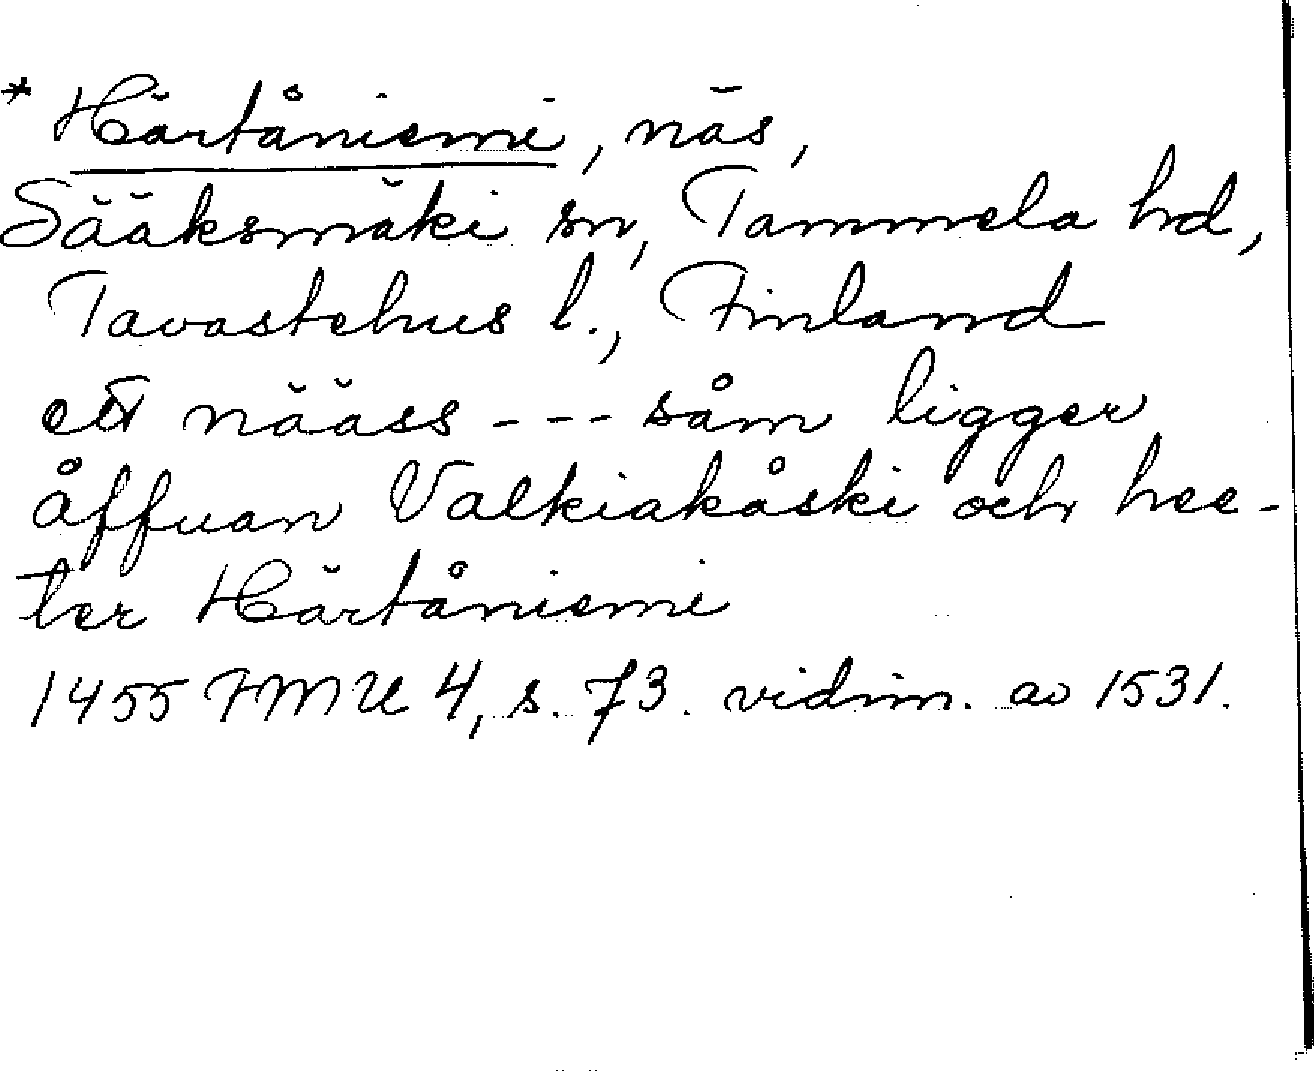 * Härtåniemi, näs,
Sääksmäki sn, Tammela hd,
Tavastehus l., Finland
ett nääss --- såm ligger
åffuan Valkiakåski och hee-
ter Härtåniemi
1455 FMU 4, s. 73. vidim. av 1531.